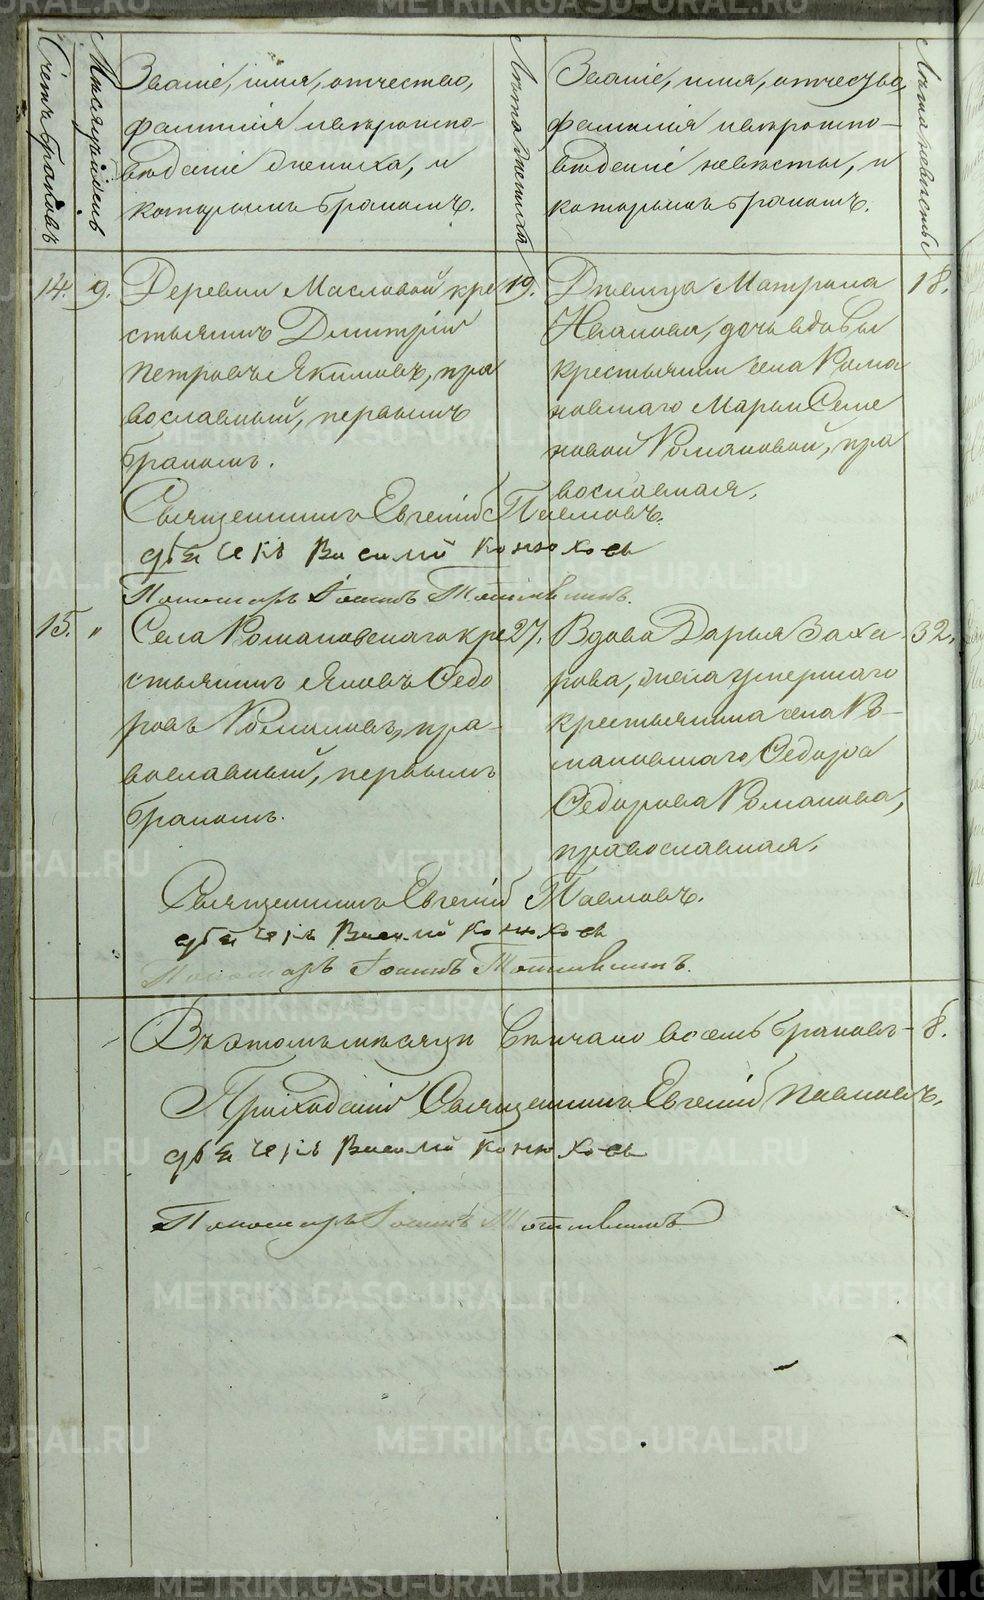 Счетъ браковъ
Мѣсяцъ и день
Званіе, имя, отчество,
фамилія и вѣроиспо-
вѣданіе жениха, и
которымъ бракомъ.
Лѣта жениха
Званіе, имя, отчество,
фамилія и вѣроиспо-
вѣданіе невѣсты, и
которымъ бракомъ.
Лѣта невѣсты
14.
9.
Деревни Масловой кре
стьянинъ Димитрій
Петровъ Якимовъ, пра
вославный, первымъ
бракомъ.
19.
Дѣвица Матрона
Иванова, дочь вдовы
крестьянки села Рома
новскаго Марьи Семе
новой Романовой, пра
вославная.
18.
Священникъ Евгеній Павловъ.
дьячекъ Василій Конюховъ
Пономарь Іоаннъ
15.
"
Села Романовскаго кре
стьянинъ Яковъ Ѳедо
ровъ Романовъ, пра-
вославный, первымъ
бракомъ.
27.
Вдова Дарья Заха
рова, жена умершаго
крестьянина села Ро-
мановскаго Ѳедора
Ѳедорова Романова,
православная.
32.
Священникъ Евгеній Павловъ.
дьячекъ Василій Конюховъ
Пономарь Іоаннъ
Въ этомъ мѣсяцѣ вѣнчано восемь браковъ – 8.
Приходскій Священникъ Евгеній Павловъ.
дьячекъ Василій Конюховъ
Пономарь Іоаннъ
METRIKI.GASO-URAL.RU